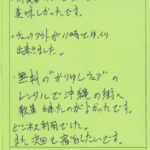 美味しかったです。
・チェックアウトが11時でゆっくり
出来ました。
・無料の"かりゆしウェア"の
レンタルで沖縄の街へ
散策出来たのがよかったです。
ビジネス利用でした。
また、次回も宿泊したいです。